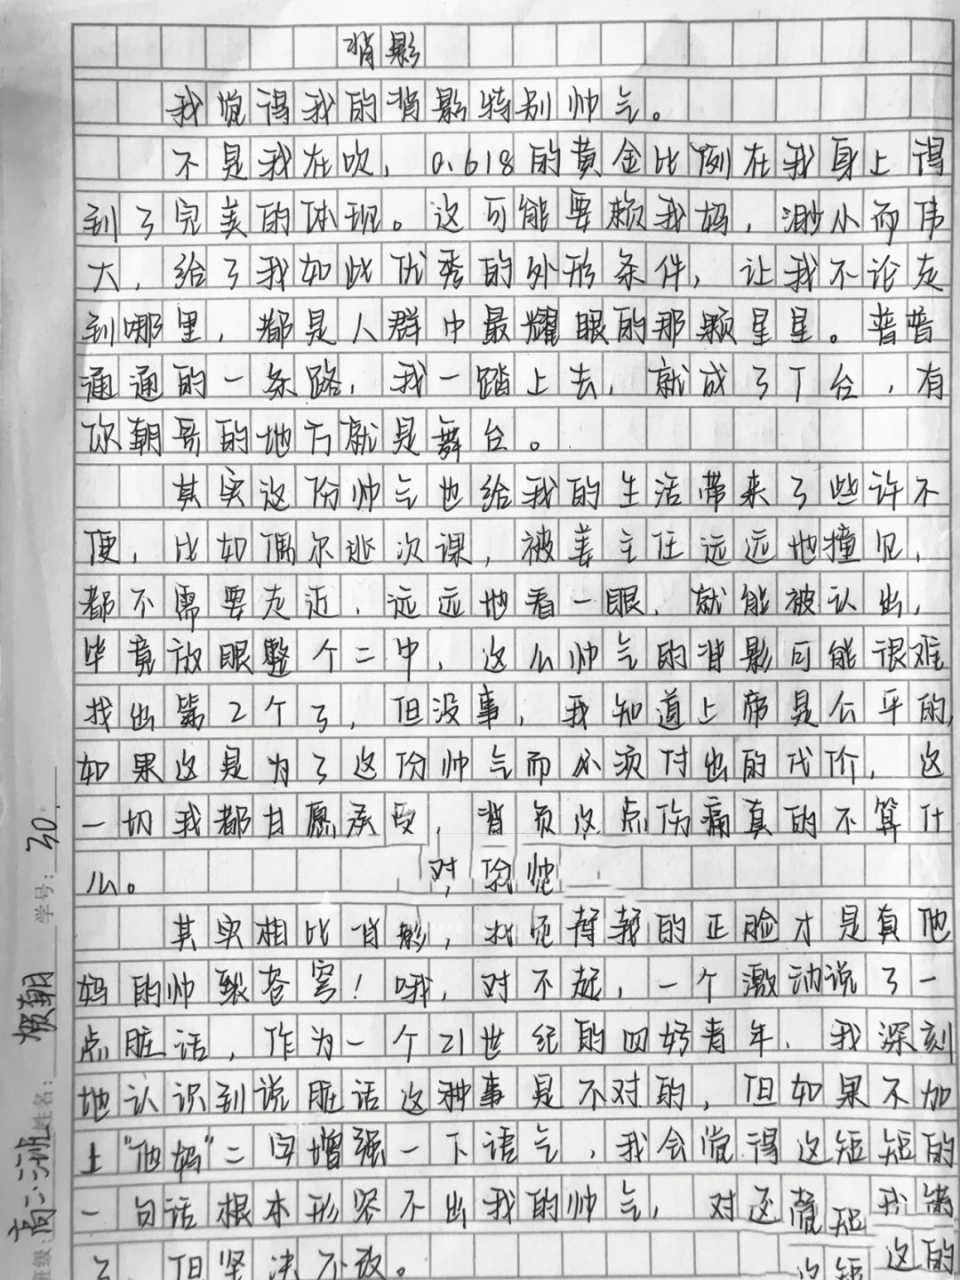 背影
我觉得我的背影特别帅气。
不是我在吹，0.618的黄金比例在我身上得
到了完美的体现。这可能要赖我妈，渺小而伟
大，给了我如此优秀的外形条件，让我不论走
到哪里，都是人群中最耀眼的那颗星星。普普
通通的一条路，我一踏上去，就成了T台，有
欧朝哥的地方就是舞台。
其实这份帅气也给我的生活带来了些许不
便，比如偶尔逃次课，被姜主任远远地撞见，
都不需要走近，远远地看一眼，就能被认出，
毕竟放眼整个二中，这么帅气的背影可能很难
找出第2个了，但没事，我知道上帝是公平的，
如果这是为了这份帅气而必须付出的代价，这
一切我都甘愿承受，背负这点伤痛真的不算什
么。
其实相比背影，我觉得我的正脸才是真他
妈的帅裂苍穹！哦，对不起，一个激动说了一
点脏话，作为一个21世纪的四好青年，我深刻
地认识到说脏话这种事是不对的，但如果不加
上"他妈"二字增强一下语气，我会觉得这短短的
一句话根本形容不出我的帅气，对 我错
了，但坚决不改。
这短 这的
班级：高二、二班 姓名： 朝 学号：30.